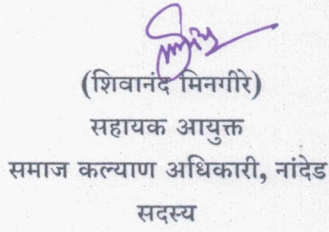 (शिवानंद मिनगीरे)
सहायक आयुक्त
समाज कल्याण अधिकारी, नांदेड
सदस्य